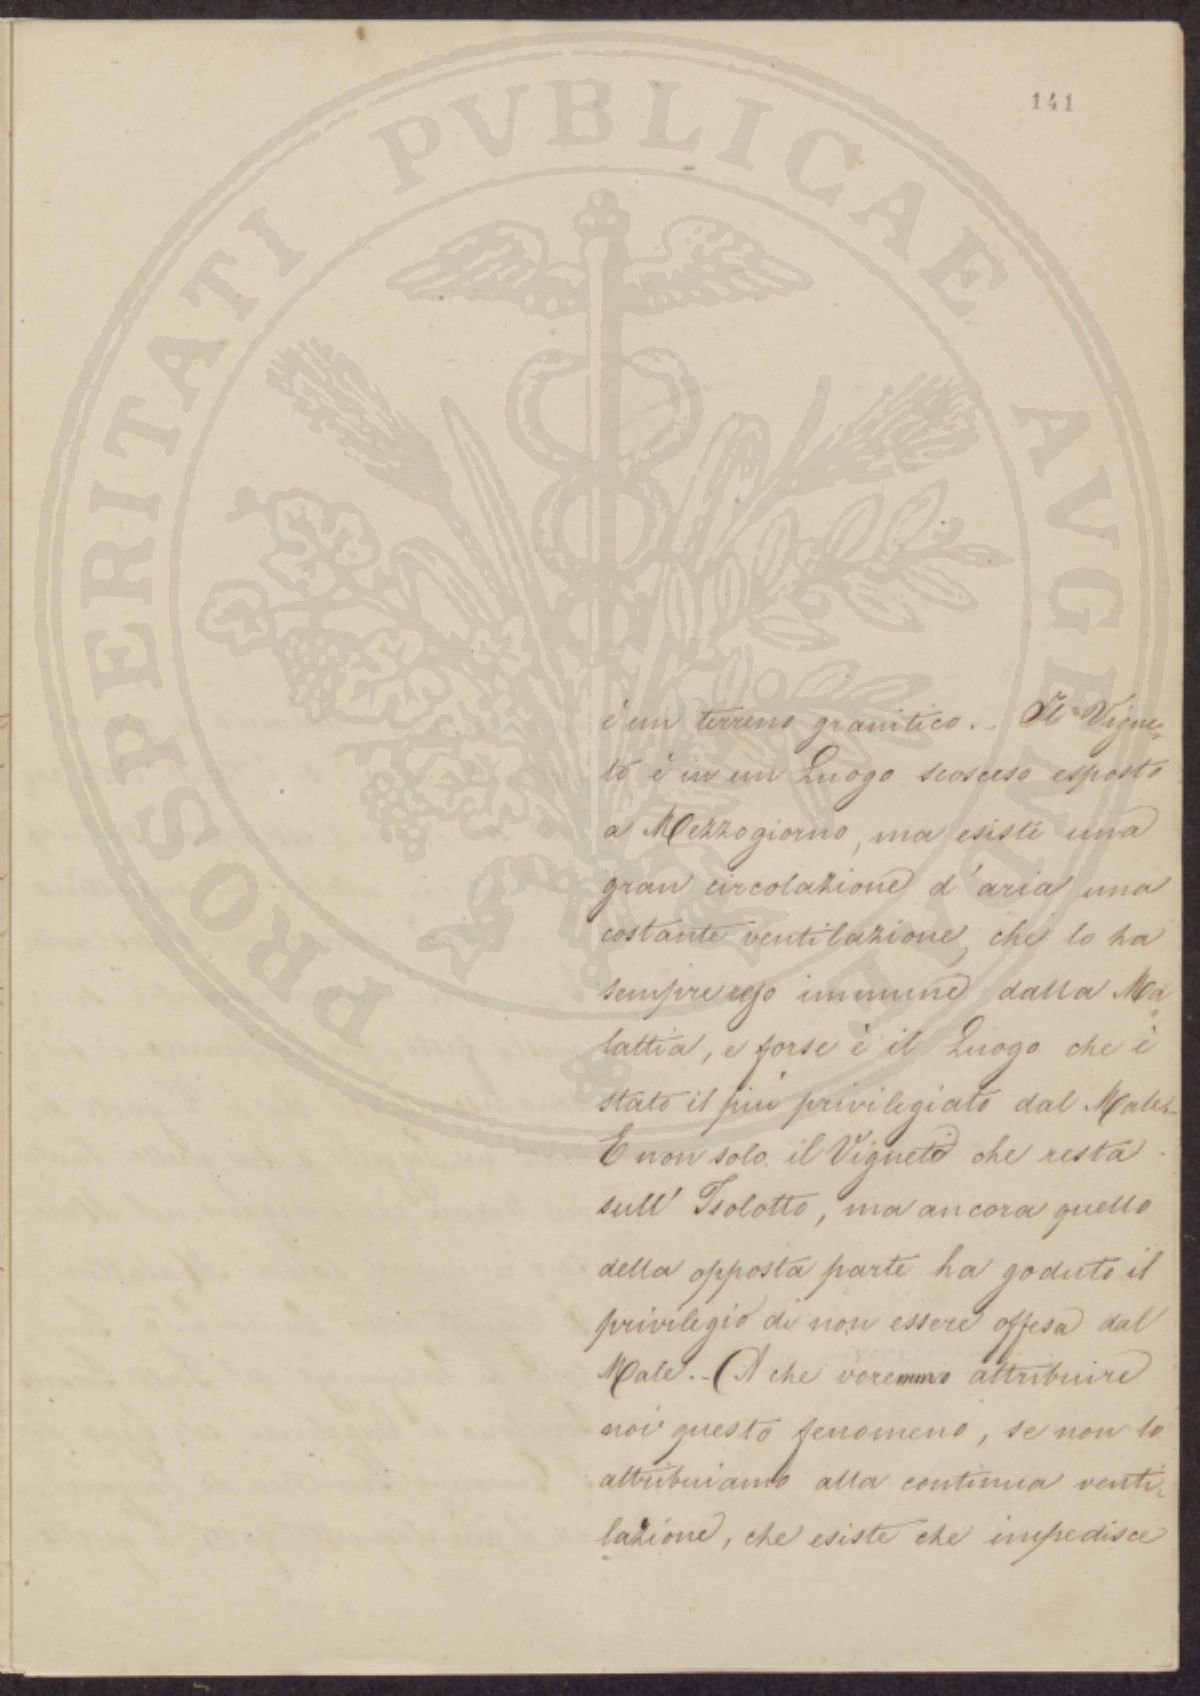 141
PROSPERITATI PVBLICAE AVGENDAE
è un terreno granitico.. Il Vigne=
to è in un Luogo scosceso esposto
a Mezzogiorno, ma esiste una
gran circolazione d'aria una
costante ventilazione, che lo ha
sempre reso immune dalla Ma=
lattia, e forse è il Luogo che è
stato il più privilegiato dal Male.-
E non solo il Vigneto che resta
sull' Isolotto, ma ancora quello
della opposta parte ha goduto il
privilegio di non essere offesa dal
Male.- A che voremmo attribuire
noi questo fenomeno, se non lo
attribuiamo alla continua venti=
lazione, che esiste che impedisce